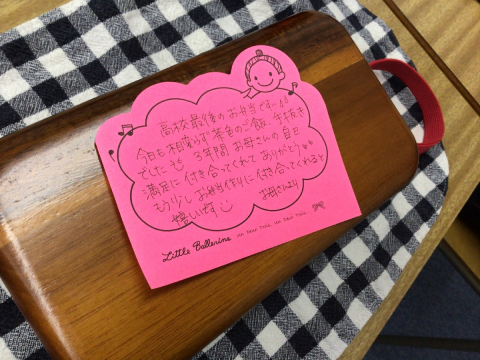 高校最後のお弁当です…
今日も相変らず茶色のご飯 手抜き
でしたっも 3年間 お母さんの自己
満足に付き合ってくれて ありがとう
もう少しお弁当作りに付き合ってくれると
嬉しいです
お母さんより
Little Ballerina